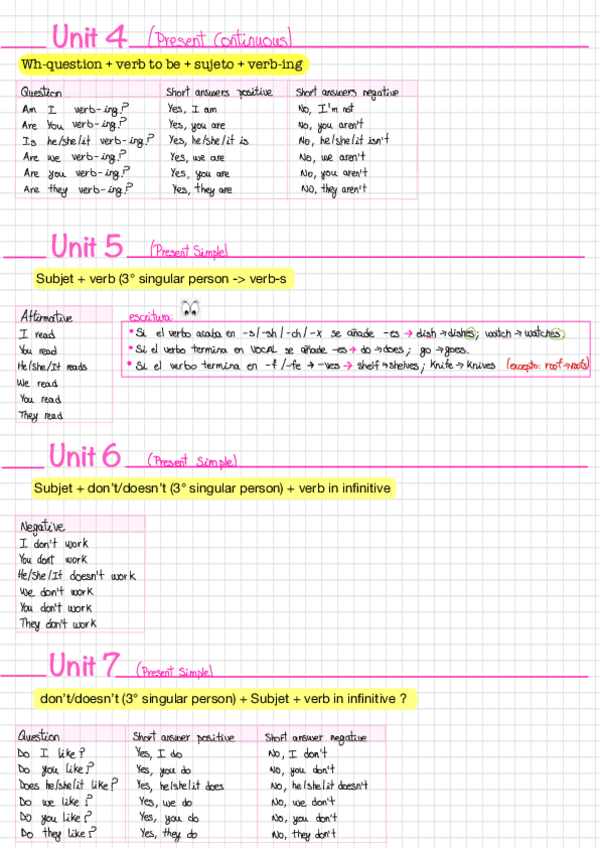 Unit 4 (Present Continuous)
Wh-question + verb to be + sujeto + verb-ing
Question Short answers positive Short answers negative
Am I verb-ing? Yes, I am No, I'm not
Are You verb-ing? Yes, you are No, you aren't
Is he/she/it verb-ing? Yes, he/she/it is No, he/she/it isn't
Are we verb-ing? Yes, we are No, we aren't
Are you verb-ing? Yes, you are No, you aren't
Are they verb-ing? Yes, they are No, they aren't
Unit 5 (Present Simple)
Subjet + verb (3° singular person -> verb-s
Afirmative escritura:
I read • Si el verbo acaba en -s/-sh/-ch/-x se añade -es → dish → dishes; watch → watches.
You read • Si el verbo termina en VOCAL se añade -es → do → does; go → goes.
He/She/It reads • Si el verbo termina en -f/-fe → -ves → shelf → shelves; Knife → Knives (excepto: roof → roofs)
We read
You read
They read
Unit 6 (Present Simple)
Subjet + don't/doesn't (3° singular person) + verb in infinitive
Negative
I don't work
You dont work
He/She/It doesn't work
We don't work
You don't work
They don't work
Unit 7 (Present Simple)
don't/doesn't (3° singular person) + Subjet + verb in infinitive ?
Question Short answer positive Short answer negative
Do I like? Yes, I do No, I don't
Do you like? Yes, you do No, you don't
Does he/she/it like? Yes, he/she/it does No, he/she/it doesn't
Do we like? Yes, we do No, we don't
Do you like? Yes, you do No, you don't
Do they like? Yes, they do No, they don't